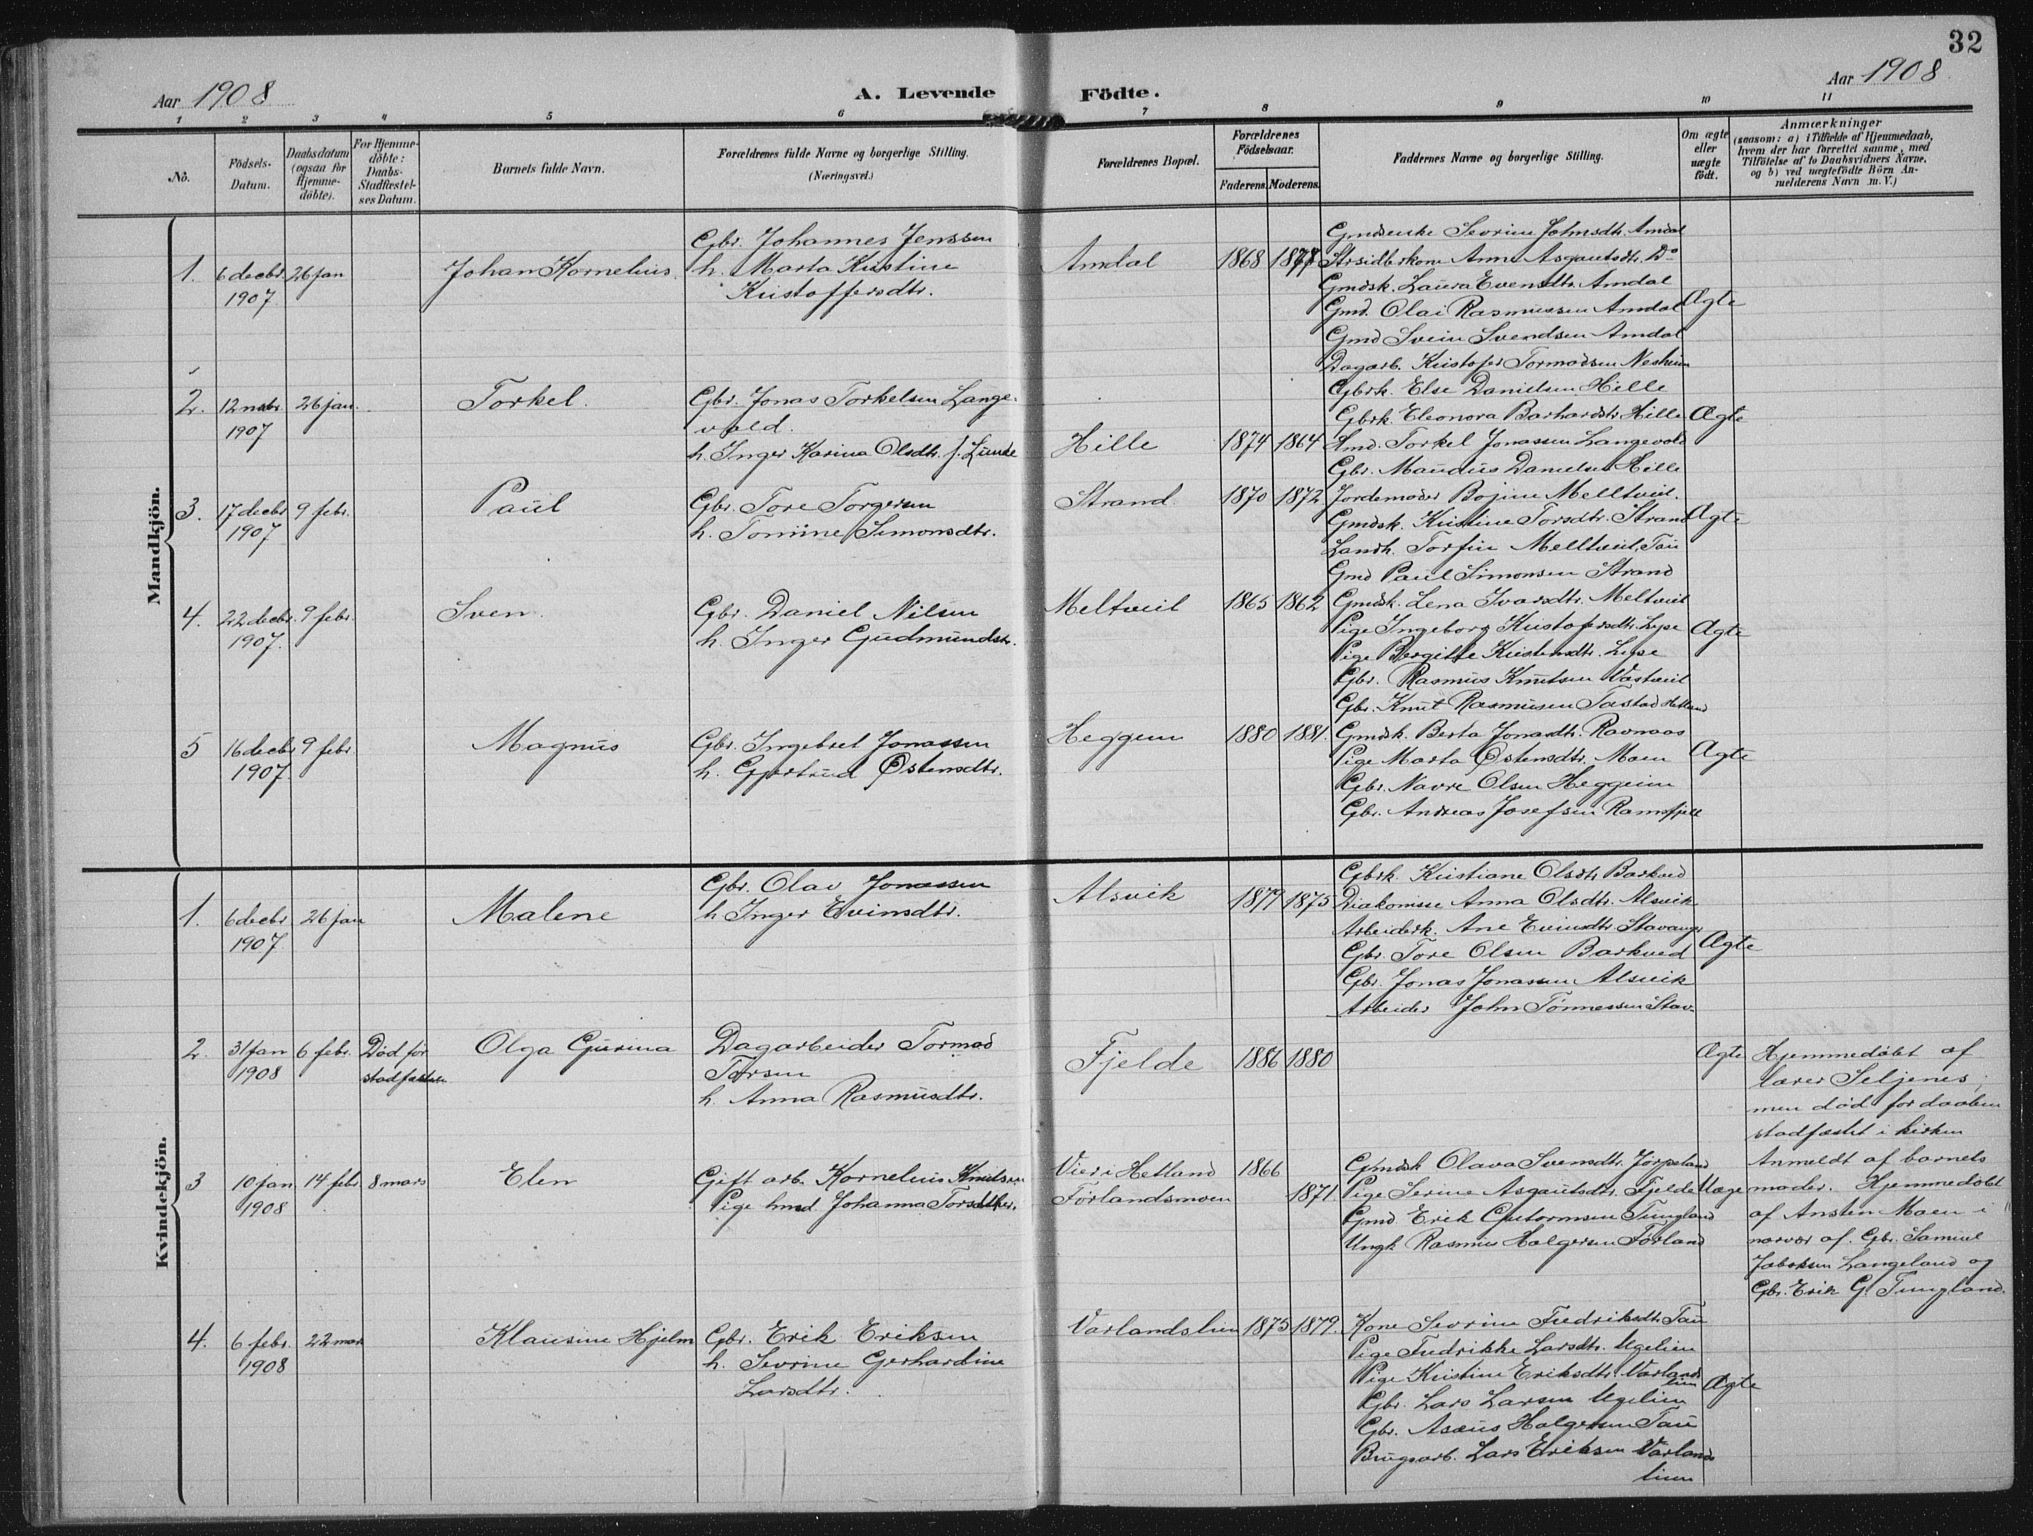 32
Aar 1908
A. Levende Födte.
Aar 1908
1 2 3 4 5 6 7 8 9 10 11
No.
Födsels-Datum.
Daabsdatum (ogsaa for Hjemme-döbte).
For Hjemme-döbte: Daabs-Stadfæstel-ses Datum.
Barnets fulde Navn.
Forældrenes fulde Navne og borgerlige Stilling.
(Næringsvei.)
Forældrenes Bopæl.
Forældrenes Födselsaar.
Faderens. Moderens.
Faddernes Navne og borgerlige Stilling.
Om ægte eller uægte födt.
Anmærkninger
(saasom: a) i Tilfælde af Hjemmedaab,
hvem der har forrettet samme, med
Tilföielse af to Daabsvidners Navne.
og b) ved uægtefödte Börn An-
melderens Navn m. V.)
Mandkjön.
1. 6 decbr. 1907 26 jan
Johan Kornelius.
Gbr. Johannes Jenssen
h. Marta Kristine
Kristoffersdtr.
Amdal 1868 1878
Gmdsenke Sevrine Johnsdtr. Amdal
Strsidderkone Anne Asgautsdtr. Do
Gmdsk. Laura Evensdtr. Amdal
Gmd. Olai Rasmussen Amdal
Gmd Svein Svendsen Amdal
Dagarb. Kristofer Tormodsen Nesheim
Ægte
2. 12 1907 26 jan.
Torkel.
Gbr. Jonas Torkelsen Lange-
vold.
h. Inger Karina Olsdtr. f. Lunde
Hille 1874 1864
Gbrk. Else Danielsen Hille
Gbrk. Eleonora Barhardtr. Hille
Torkel Jonassen Langevold
Gbr. Maudius Danielsen Hille
Ægte
3. 17 decbr 1907 9 febr.
Paul
Gbr. Tore Torgersen
h. Tomine Simonsdtr.
Strand 1870 1872
Jordemoder Bojine Melltveit.
Gmdsk. Kristine Torsdtr. Strand
Landh. Torfin Melltveit, Tau
Gmd Paul Simonsen Strand
Ægte
4. 22 decbr. 1907. 9 febr.
Sven.
Gbr. Daniel Nilsen
h. Inger Gudmundsdtr.
Meltveit 1865 1862
Gmdsk. Lena Ivarsdtr. Meltveit
Pige Ingeborg Kristofersdtr. Lepe
Pige Bergitte Kristensdtr. Lepe
Gbr. Rasmus Knutsen Vastveit
Gbr. Knut Rasmussen Tastad Hetland
Ægte
5 16 decbr 1907. 9 febr.
Magnus
Gbr. Ingebret Jonassen
h. Gjertrud Østensdtr.
Heggem 1880 1881.
Gmdsk Berta Jonasdtr. Ravnaas
Pige Marta Østensdtr. Moen
Gbr. Navre Olsen Heggeim
Gbr. Andreas Josefsen Ramsfjell
Ægte
Kvindekjön.
1. 6 decbr 1907. 26 jan
Malene
Gbr. Olav Jonassen
h Inger Evinsdtr.
Alsvik 1879 1875
Gbrk. Kristiane Olsdtr. Barkved
Diakonisse Anna Olsdtr. Alsvik
Arbeiderk. Ane Evinsdtr. Stavanger
Gbr. Tore Olsen Barkved
Gbr. Jonas Jonassen Alsvik
Arbeider John Tönnessen Stav.
Ægte
2. 31 jan 1908 6 febr. Död för stadfæstelsen
Olga Gurina
Dagarbeider Tormod
Torsen
h. Anna Rasmusdtr.
Fjelde 1886 1880
Ægte
Hjemmedöbt af
lærer Seljenes;
men död för daaben
stadfæstet i kirken
3 10 jan. 1908 14 febr. 8 mars
Elen
Gift arb. Kornelius Knutsen
Pige hmd Johanna Torsdtter.
Vier i Hetland 1866
Forlandsmoen 1871.
Gmdsk Olava Svensdtr. Jörpeland
Pige Serine Asgautsdtr. Fjelde
Gmd Erik Gutormsen Tungland
Ungk. Rasmus Holgersen Förland
Uæge
Anmeldt af barnets
moder. Hjemmedöbt
af Ansten Moen i
nærvær af. Gbr. Samuel
Jakobsen Langeland og
Gbr. Erik G. Tungland.
4. 6 febr. 1908 22 mar
Klausine Hjelm
Gbr. Erik Eriksen
h. Sevrine Gerhardine
Larsdtr.
Varlandslien 1875 1879.
Kone Sevrine Fredriksdtr. Tau
Pige Fredrikke Larsdtr. Ugelien
Pige Kristine Eriksdtr. Varlands
lien
Gbr. Lars Larsen Ugelien
Gbr. Asæus Holgersen Tau
Brugsarb. Lars Eriksen Varlands
lien
Ægte